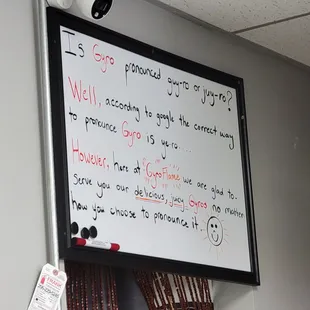 Is Gyro pronounced guy-ro or juy-ro?
Well, according to google the correct way
to pronounce Gyro is ye-ro....
However, here at GyroFlame we are glad to
serve you our delicious, juicy Gyros no matter
how you choose to pronounce it